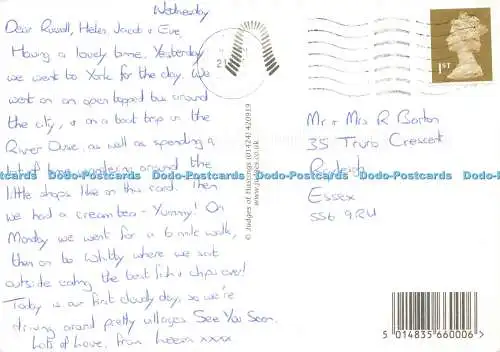 Wednesday
Dear Russell, Helen, Jacob & Eve,
Having a lovely time. Yesterday
we went to York for the day. We
went on an open topped bus around
the city, & on a boat trip on the
River Ouse, as well as spending a
lot of time wandering around the
little shops like on this card. Then
we had a cream tea - Yummy! On
Monday we went for a 6 mile walk,
then on to Whitby where we sat
outside eating the best fish & chips ever!
Today is our first cloudy day, so we're
driving around pretty villages. See You Soon,
Lots of Love, from xxxx
© Judges of Hastings (01424) 420919
www.judges.co.uk
21
1ST
Mr & Mrs R Barton
35 Truro Crescent
Rayleigh
Essex
SS6 9RU
Dodo-Postcards Dodo-Postcards Dodo-Postcards Dodo-Postcards Dodo-Postcards
5 014835 660006 >